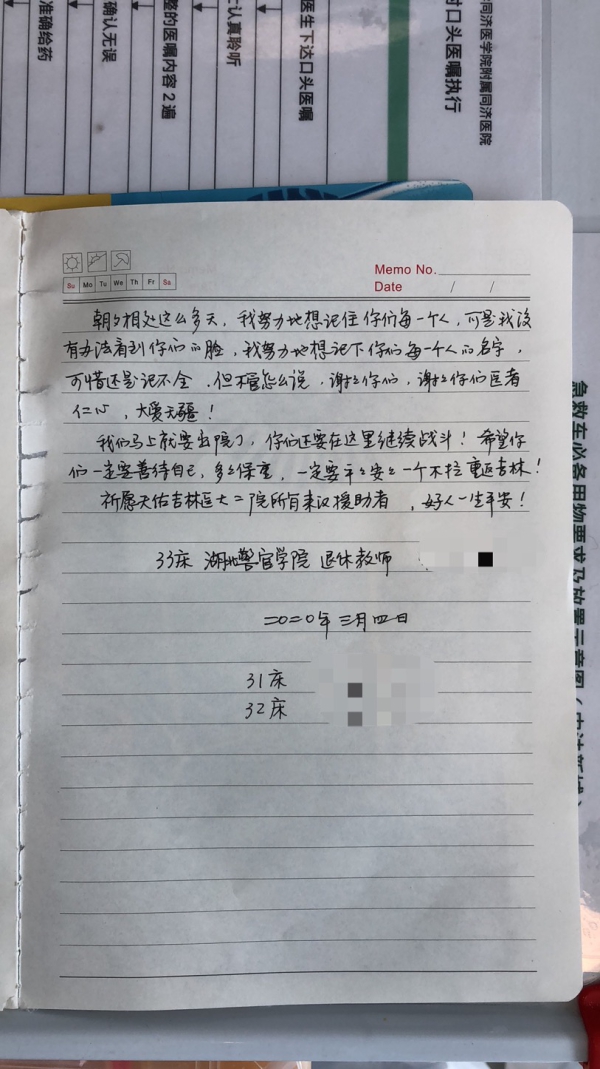 学同济医学院附属同济医院
时口头医嘱执行
医生下达口头医嘱
士认真聆听
整的医嘱内容2遍
确认无误
准确给药
Memo No.
Su Mo Tu We Th Fr Sa
Date / /
朝夕相处这么多天，我努力地想记住你们每一个人，可是我没
有办法看到你们的脸，我努力地想记下你们每一个人的名字，
可惜还是记不全，但不管怎么说，谢谢你们，谢谢你们医者
仁心，大爱无疆！
我们马上就要出院了，你们还要在这里继续战斗！希望你
们一定要善待自己，多多保重，一定要平平安安一个不拉重返吉林！
祈愿天佑吉林医大二院所有来汉援助者，好人一生平安！
33床 湖北警官学院 退休教师
二〇二〇年三月四日
31床
32床
急救车必备用物要求及放置示意图（中法新城）